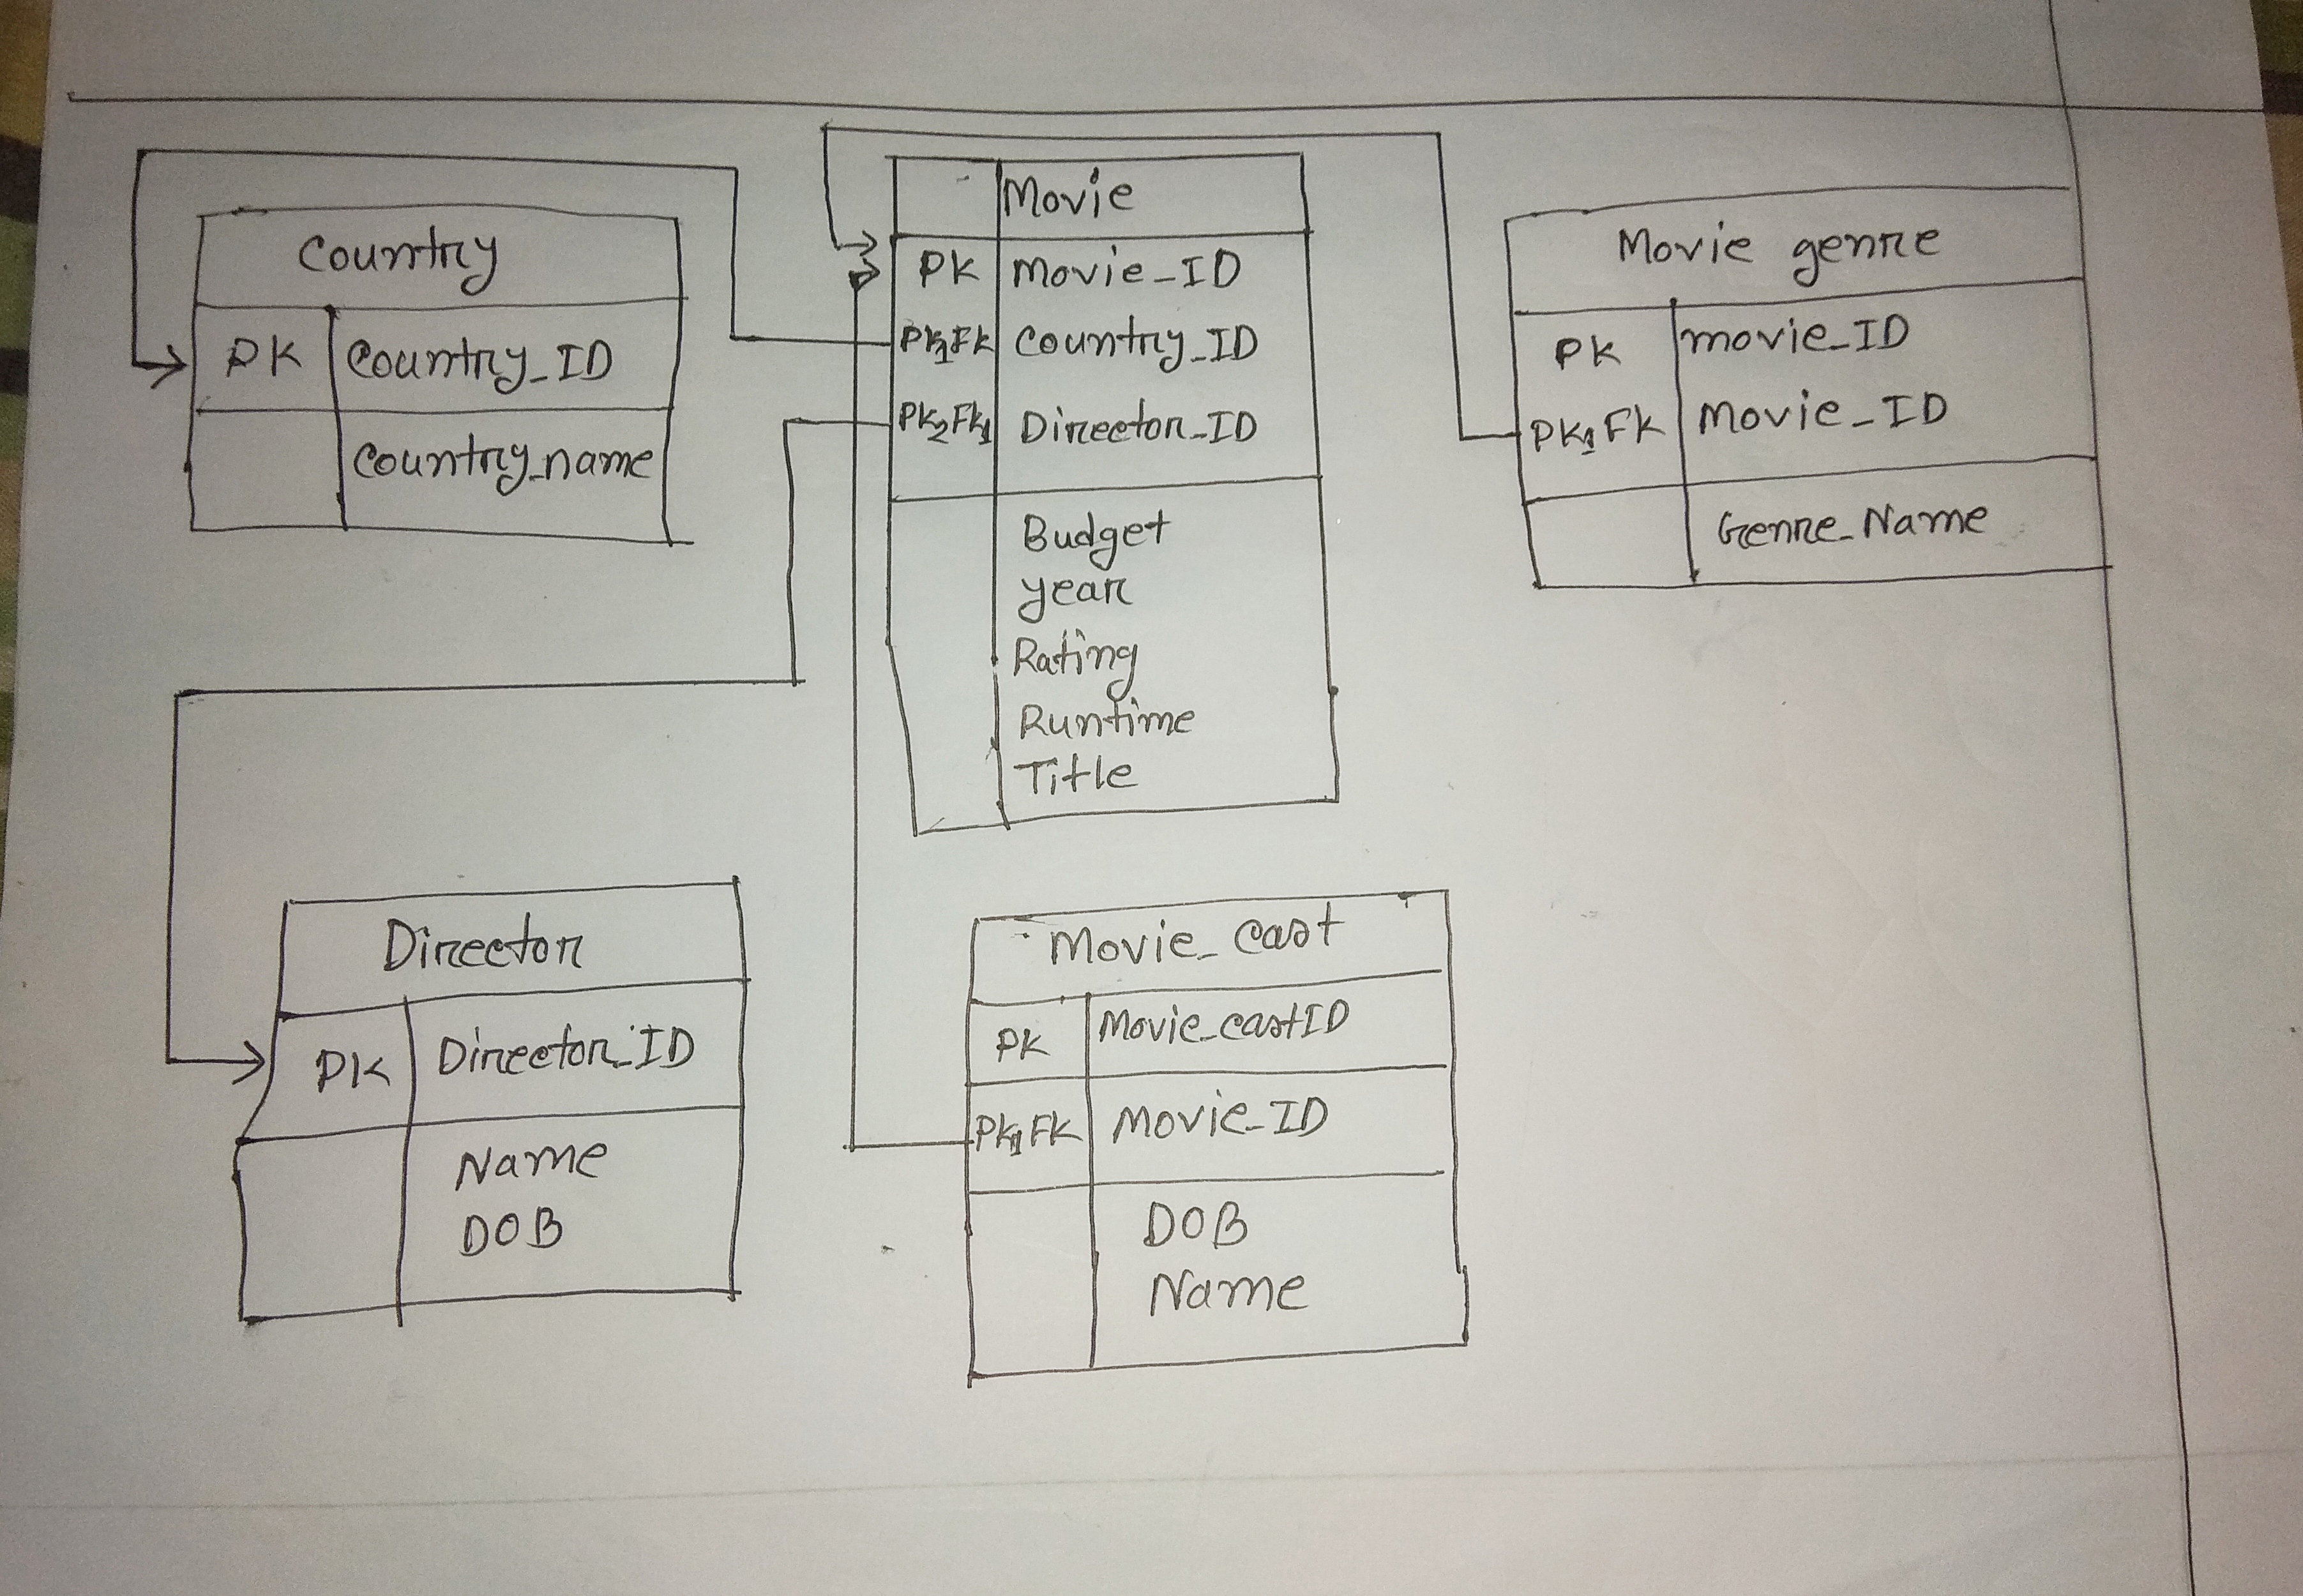 Country
PK Country_ID
Country_name
Movie
PK Movie_ID
PK1FK Country_ID
PK2FK1 Director_ID
Budget
year
Rating
Runtime
Title
Movie genre
PK movie_ID
PK1FK Movie_ID
Genre_Name
Director
PK Director_ID
Name
DOB
Movie_cast
PK Movie_castID
PK1FK Movie_ID
DOB
Name